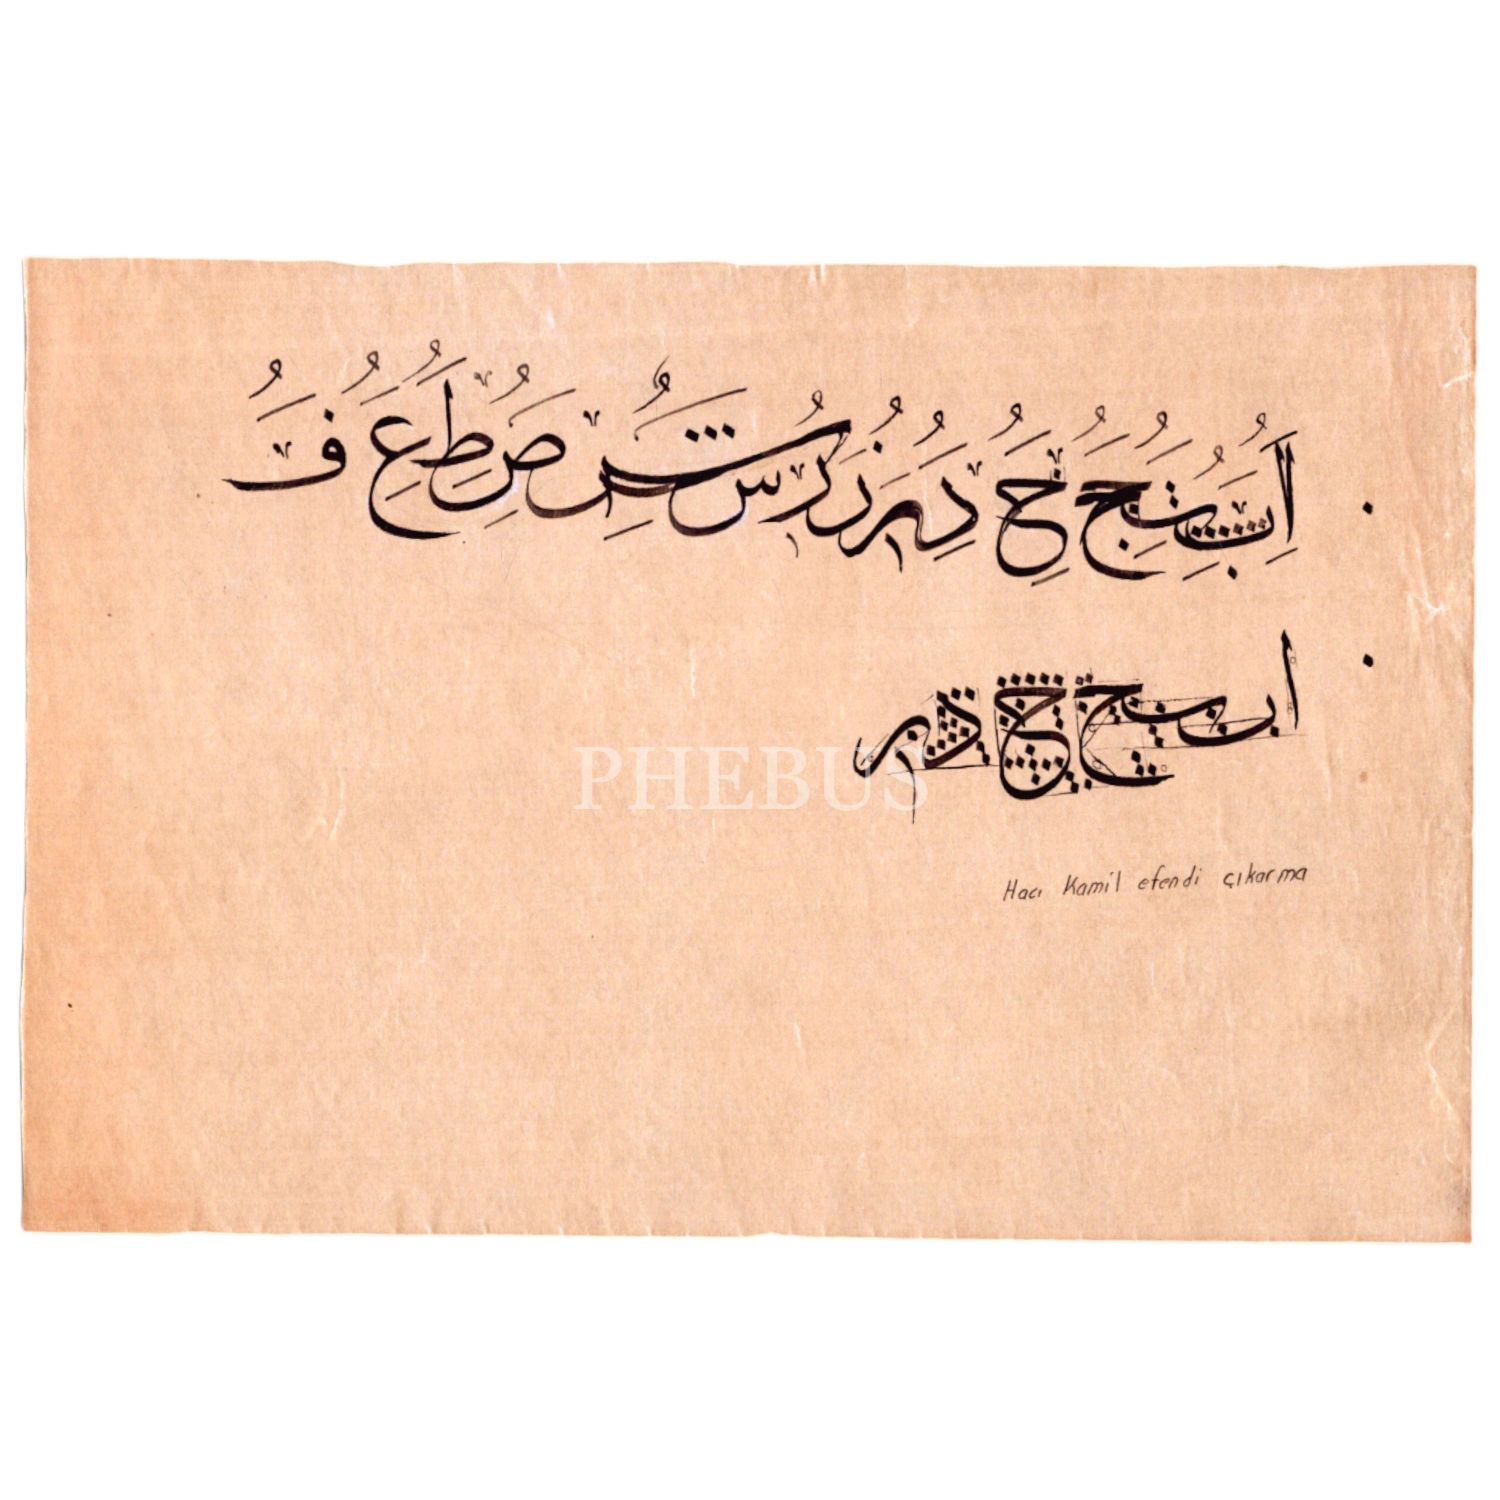 ا ب ت ج خ د ر ز ر س ش ص ط ع ف
ا ب ت ج ح د ر
PHEBUS
Hacı Kamil efendi çıkarma